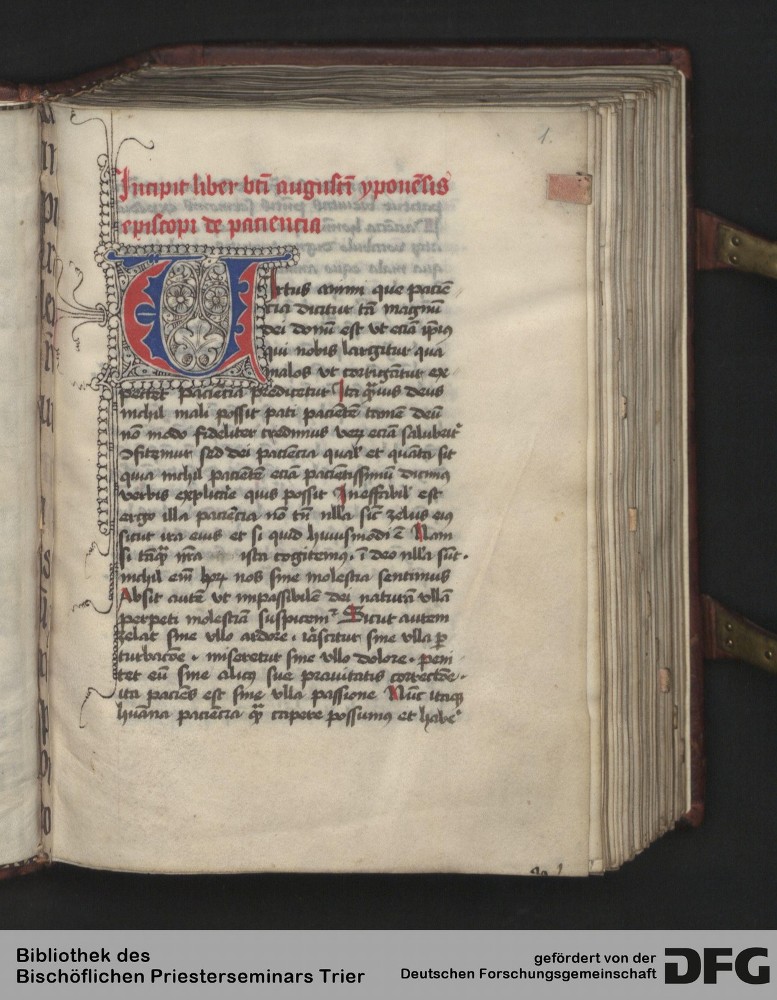 1.
Incipit liber bti augusti yponēsis
episcopi de paciencia
Uirtus animi que paciē
cia dicitur tā magnū
dei donū est ut eciā ipiꝰ
qui nobis largitur qua
malos ut corrigātur ex
pectet paciēcia predicetur Ita qͣuis deus
nichil mali possit pati pacienté
nō modo fideliter credimus veꝝ eciā salubritʳ
ꝯfitemur sed dei paciēcia qualˢ et quāta sit
quā nichil pacientē eciā pacientissimū dicimꝰ
verbis explicare quis possit Ineffabilˢ est
ergo illa paciēcia nō tn̄ nlla sic̄ zelus eiꝰ
sicut ira eius et si quid huiusmodi ē Nam
si tāqͣ nr̄a ista cogitemꝰ · ī deo nlla sūt ·
nichil em̄ hoꝝ nos sine molestia sentimus
Absit autē ut inpassibilē dei naturā ullā
perpeti molestiā suspicemʳ Sicut autem
zelat sine ullo ardore · irascitur sine ulla ꝑ
turbacōe · miseretur sine ullo dolore · peni
tet eū sine alicꝰ sue prauitatis correctōe ·
ita paciēs est sine ulla passione Nūc itaqꝫ
huāna paciēcia qͣ capere possumꝰ et habeʳ
Bibliothek des
Bischöflichen Priesterseminars Trier
gefördert von der
Deutschen Forschungsgemeinschaft
DFG